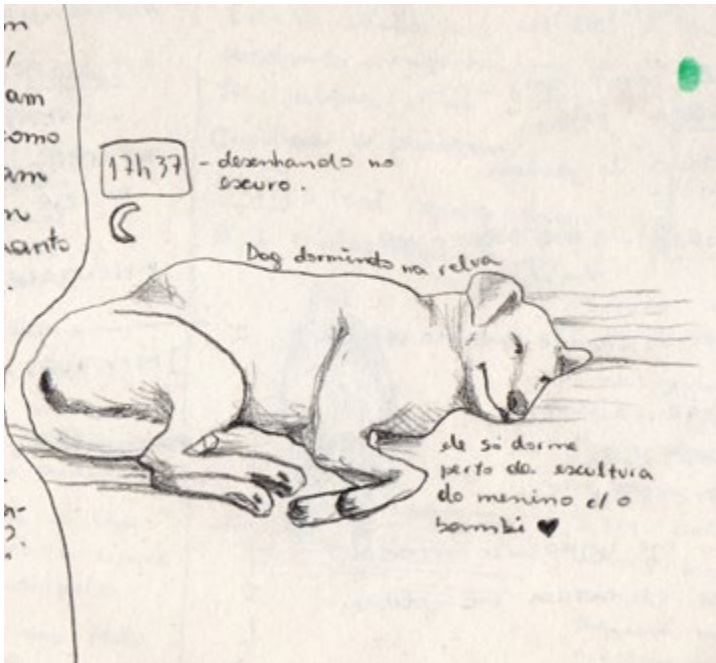 am
como
am
uanto
17h37 - desenhando no
escuro.
Dog dormindo na relva
ele só dorme
perto da escultura
do menino c/ o
bambi ♥